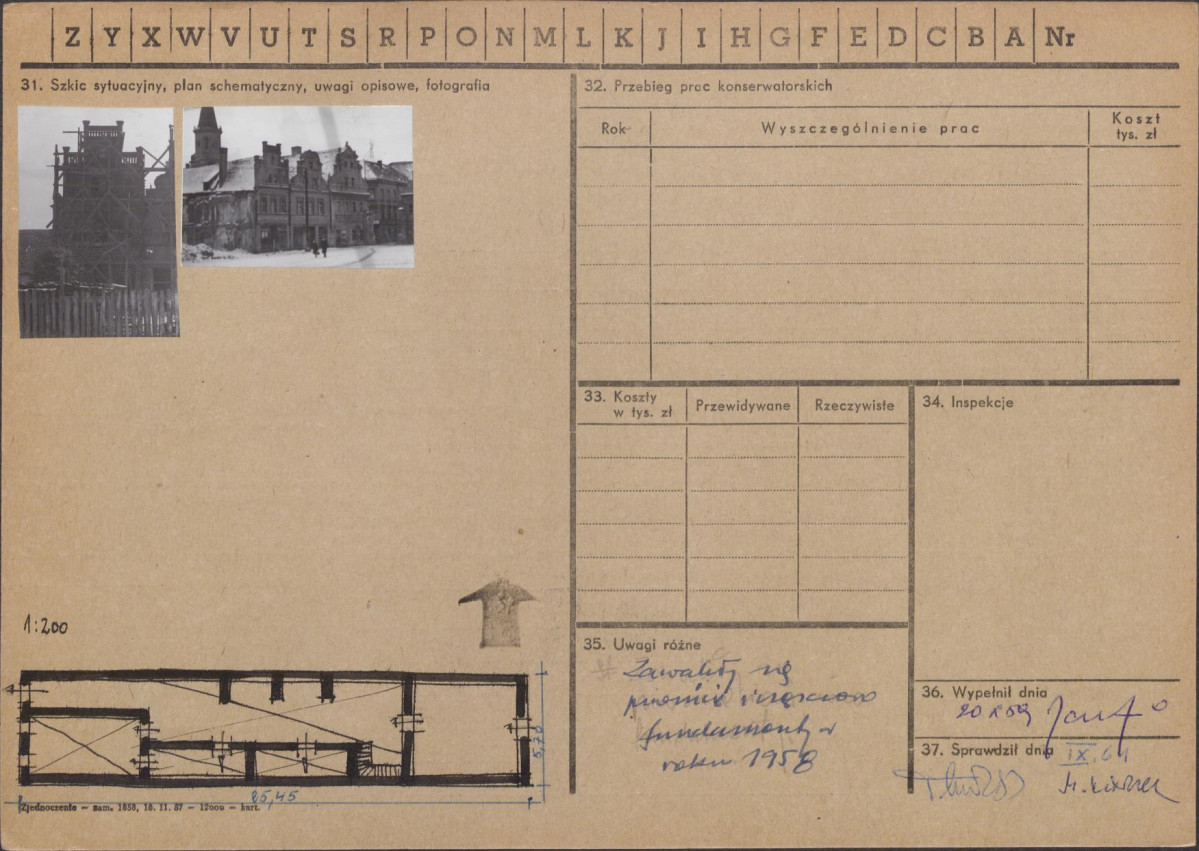 Z Y X W V U T S R P O N M L K J I H G F E D C B A Nr
31. Szkic sytuacyjny, plan schematyczny, uwagi opisowe, fotografia
1:200
5,70
25,45
Zjednoczenie — zam. 1858, 16. 11. 57 — 12000 — kart.
32. Przebieg prac konserwatorskich
Rok
Wyszczególnienie prac
Koszt
tys. zł
33. Koszty
w tys. zł
Przewidywane
Rzeczywiste
34. Inspekcje
35. Uwagi różne
Zawaliły się
piwnice i częściowo
fundamenty w
roku 1958
36. Wypełnił dnia
20 X 59
37. Sprawdził dnia
IX. 61